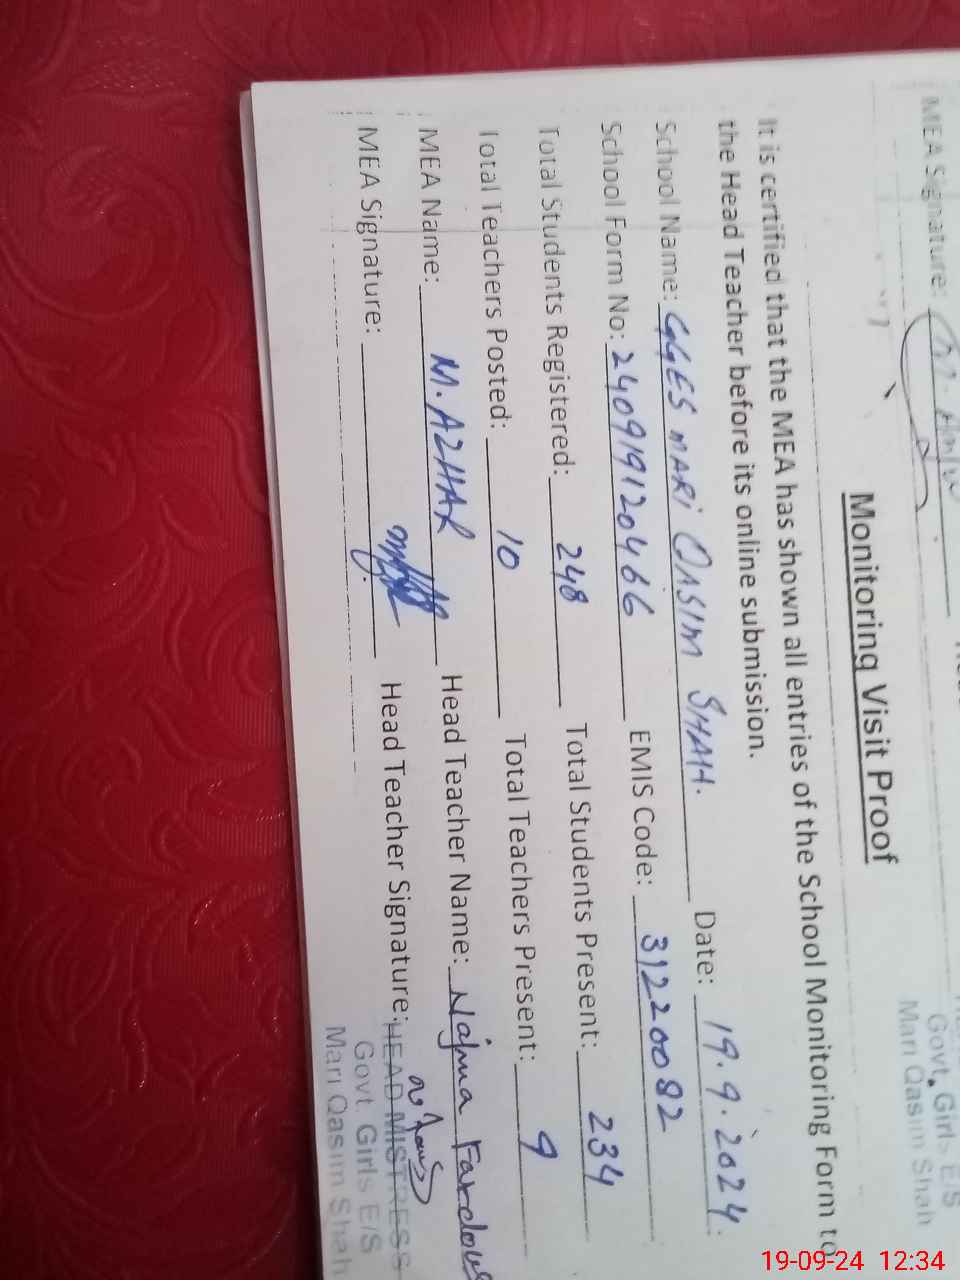 MEA Signature:
Govt. Girls E/S
Mari Qasim Shah
Monitoring Visit Proof
It is certified that the MEA has shown all entries of the School Monitoring Form to
the Head Teacher before its online submission.
School Name: GGES MARI QASIM SHAH. Date: 19.9.2024
School Form No: 240919120466 EMIS Code: 31220082
Total Students Registered: 248 Total Students Present: 234
Total Teachers Posted: 10 Total Teachers Present: 9
MEA Name: M. AZHAR Head Teacher Name: Najma Fardous
MEA Signature: Head Teacher Signature:
HEAD MISTRESS
Govt. Girls E/S
Mari Qasim Shah
19-09-24 12:34